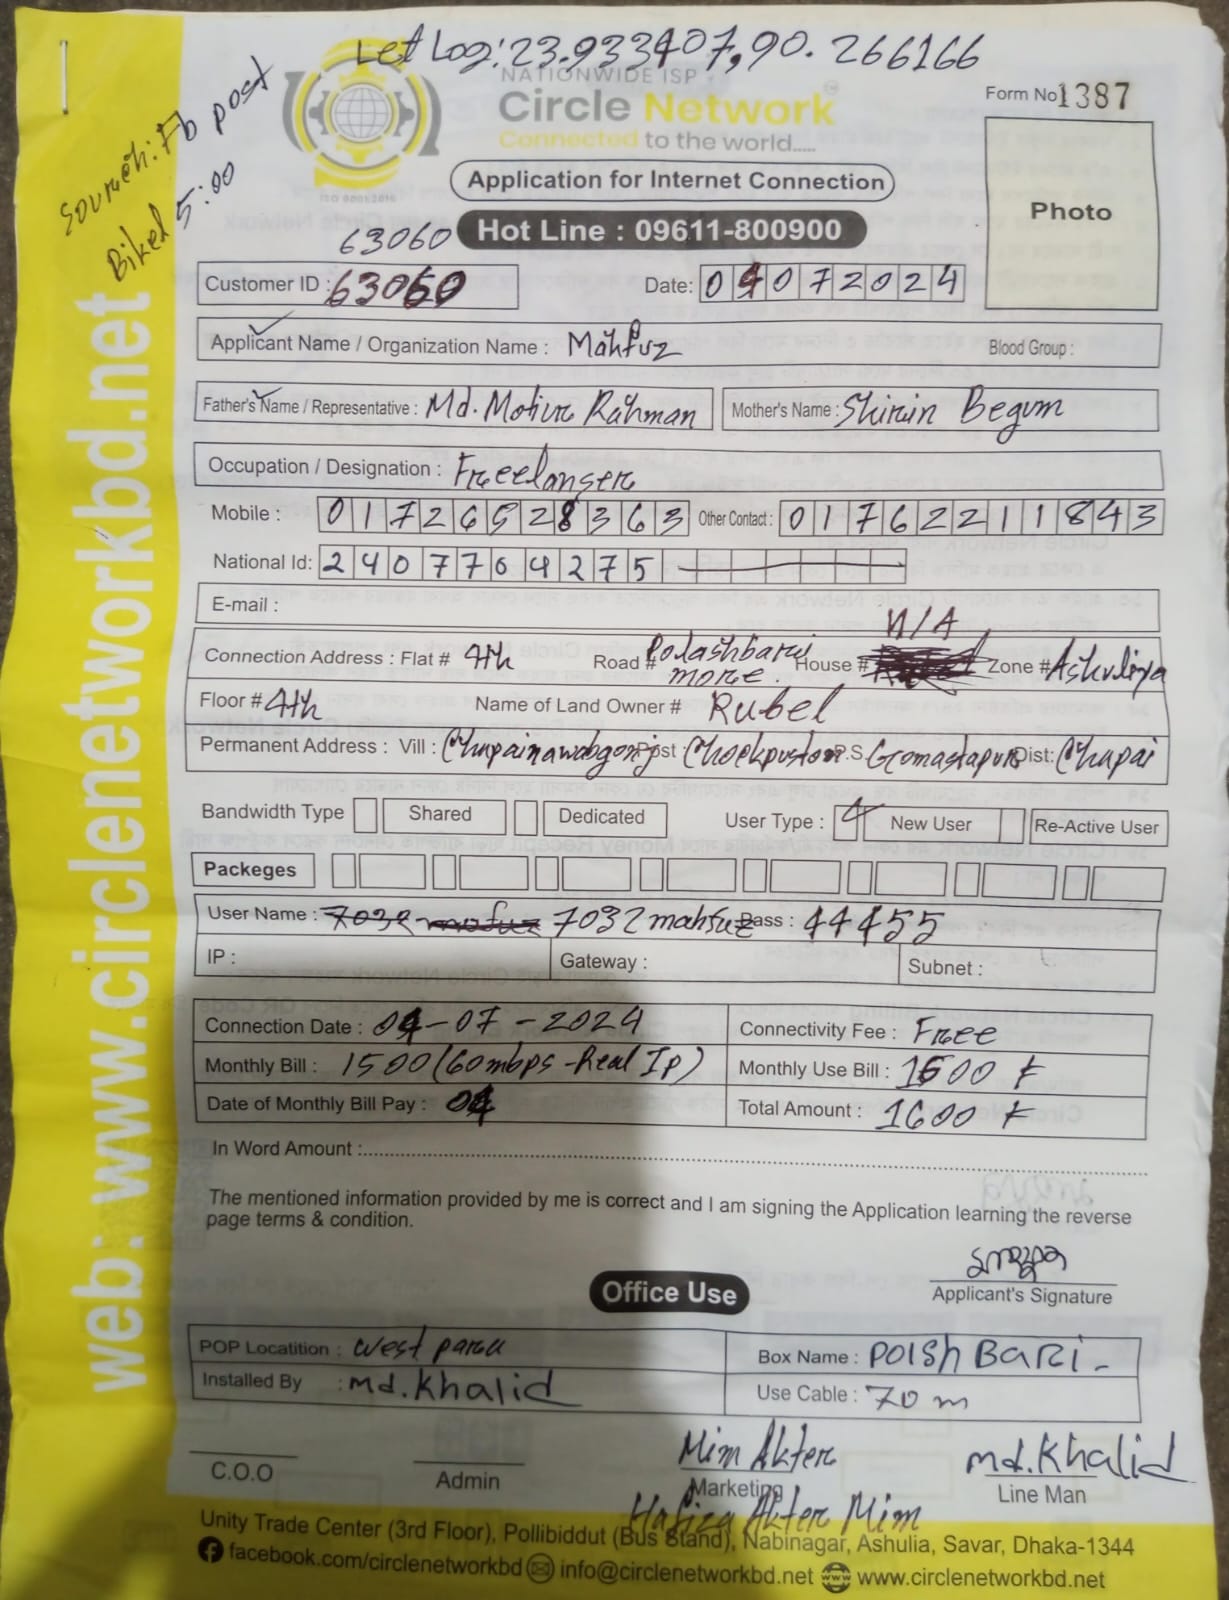 Let Log: 23.933407, 90.266166
NATIONWIDE ISP
Circle Network
Connected to the world.....
Form No 1387
Fb post
Bikel 5:00
ISO 9001:2015
Application for Internet Connection
Photo
Hot Line : 09611-800900
63060
Customer ID : 63060
Date: 04072024
Applicant Name / Organization Name : Mahfuz
Blood Group :
Father's Name / Representative : Md. Motiur Rahman
Mother's Name : Shirin Begum
Occupation / Designation : Freelanser
Mobile : 01726528363
Other Contact : 01762211843
National Id: 2407764275
E-mail :
N/A
Connection Address : Flat # 4th Road # Polashbari more. House # Zone # Ashuliya
Floor # 4th Name of Land Owner # Rubel
Permanent Address : Vill : Chapainawabgonj Post : P.S. Gomastapur Dist: Chapai
Bandwidth Type Shared Dedicated User Type : New User Re-Active User
Packeges
User Name : 7032 mahfuz Pass : 44455
IP : Gateway : Subnet :
Connection Date : 04-07-2024 Connectivity Fee : Free
Monthly Bill : 1500 (60mbps - Real Ip) Monthly Use Bill : 1600 ৳
Date of Monthly Bill Pay : 04 Total Amount : 1600 ৳
In Word Amount :
The mentioned information provided by me is correct and I am signing the Application learning the reverse
page terms & condition.
Applicant's Signature
Office Use
POP Locatition : West para Box Name : POlSh BaRi -
Installed By : md. Khalid Use Cable : 70 m
C.O.O
Admin
Mim Akter
Marketing
Hafiza Akter Mim
md. Khalid
Line Man
Unity Trade Center (3rd Floor), Pollibiddut (Bus Stand), Nabinagar, Ashulia, Savar, Dhaka-1344
facebook.com/circlenetworkbd info@circlenetworkbd.net www.circlenetworkbd.net
web: www.circlenetworkbd.net